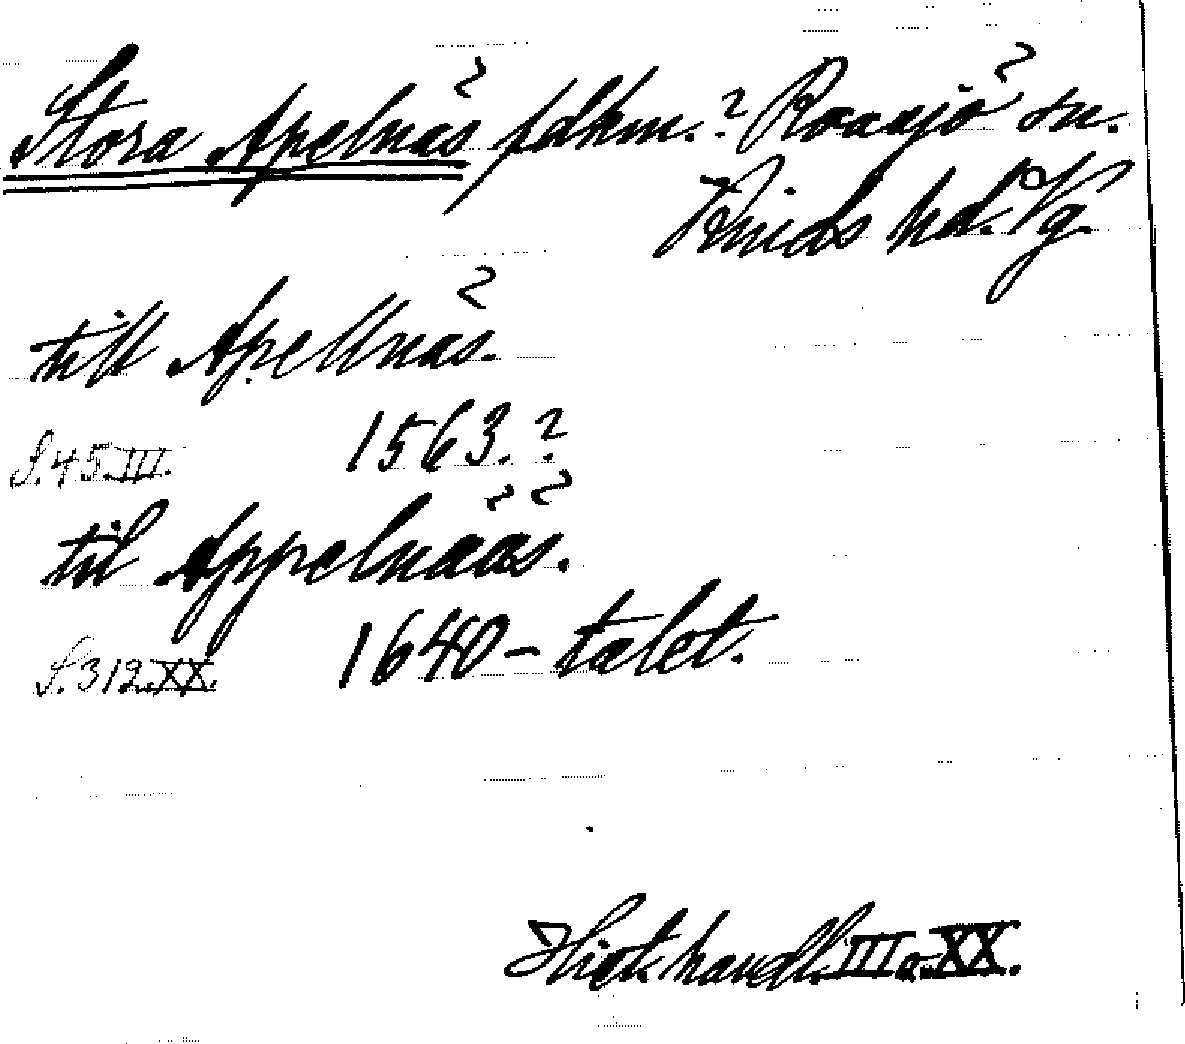 Stora Apelnäs fdhm.? Roasjö sn.
Kinds hd. Vg.
till Apellnäs.
S. 45. III. 1563.?
til Appelnääs.
S. 312. XX. 1640-talet.
Hist. handl. III o. XX.